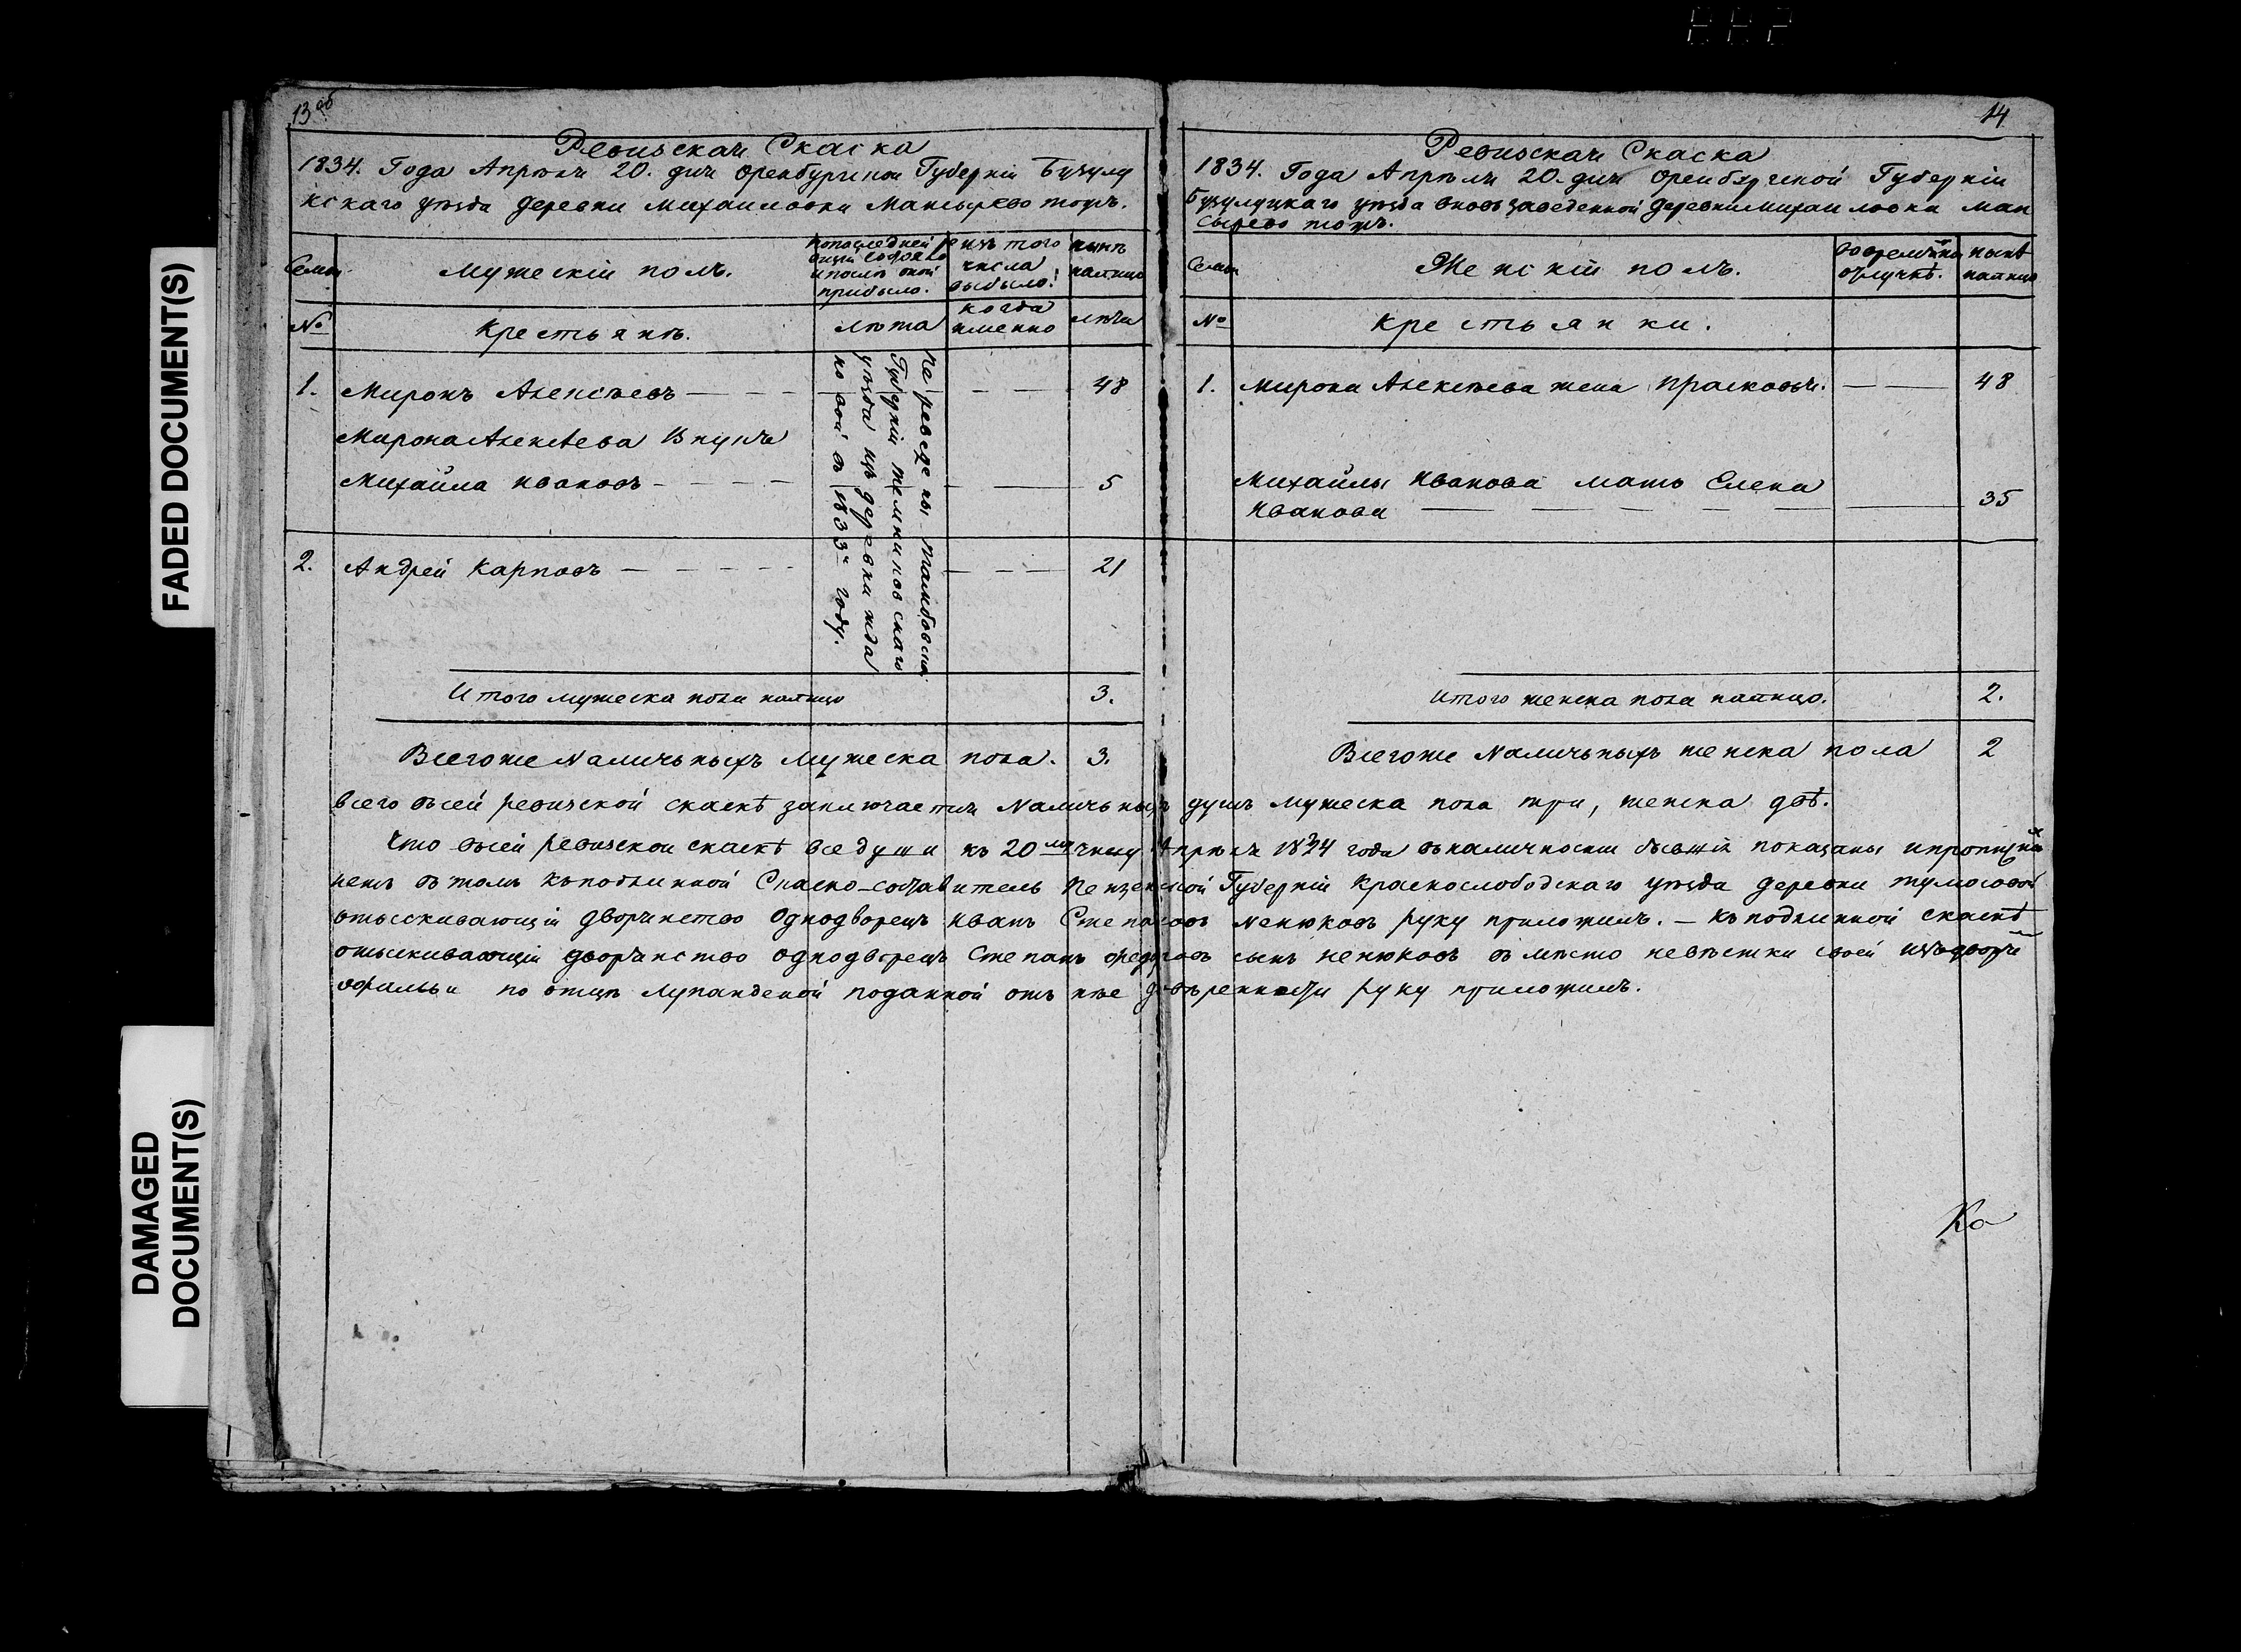 FADED DOCUMENT(S)
DAMAGED
DOCUMENT(S)
13 об
Ревизская Скаска
1834. Года Апрѣля 20. дня Оренбургской Губерніи Бузулу
кскаго уѣзда деревни Михаиловки Мансырево тожъ.
Семьи
Мужескій полъ.
по последней ре
визіи состояло
и после оной
прибыло.
изъ того
числа
выбыло.
нынѣ
налицо
№
Крестьянѣ.
лѣта
когда
именно
лѣта
1. Миронъ Алексѣевъ 48
Мирона Алексѣева Внукъ
Михайла Ивановъ 5
2. Андрей Карповъ 21
Переведены Тамбовской
Губерніи Темниковскаго
уѣзда изъ деревни Жда
новой въ 1833м году.
Итого мужеска пола налицо 3.
Всегоже Наличьныхъ Мужеска пола. 3.
14
Ревизская Скаска
1834. Года Апрѣля 20. дня Оренбургской Губерніи
Бузулуцкаго уѣзда вновь заведенной деревни Михаиловка Ман
сырево тожъ.
Семьи
Женскій полъ.
во временной
отлучкѣ.
нынѣ
налицо
№
Крестьянки.
1. Мирона Алексѣева жена Прасковья. 48
Михайлы Иванова мать Елена
Иванова 35
Итого женска пола налицо. 2.
Всегоже Наличьныхъ женска пола 2
Всего въсей ревизской скаскѣ заключается Наличьныхъ душъ мужеска пола три, женска двѣ.
Что въсей ревизской скаскѣ все души къ 20му числу Апрѣля 1834 года въналичности бывшія показаны и пропущен
нетъ въ томъ къподлинной Скаско-составитель Пензенской Губерніи Краснослободскаго уѣзда деревни
отыскивающій дворянство Однодворецъ Иванъ Степановъ Ненюковъ руку приложилъ. — Къподлинной скаскѣ
отыскивающій дворянство однодворецъ Степанъ Федоровъ сынъ Ненюковъ въмѣсто невѣстки своей изъдворя
по отцѣ поданной отъ нѣе довѣренности руку приложилъ.
Ко